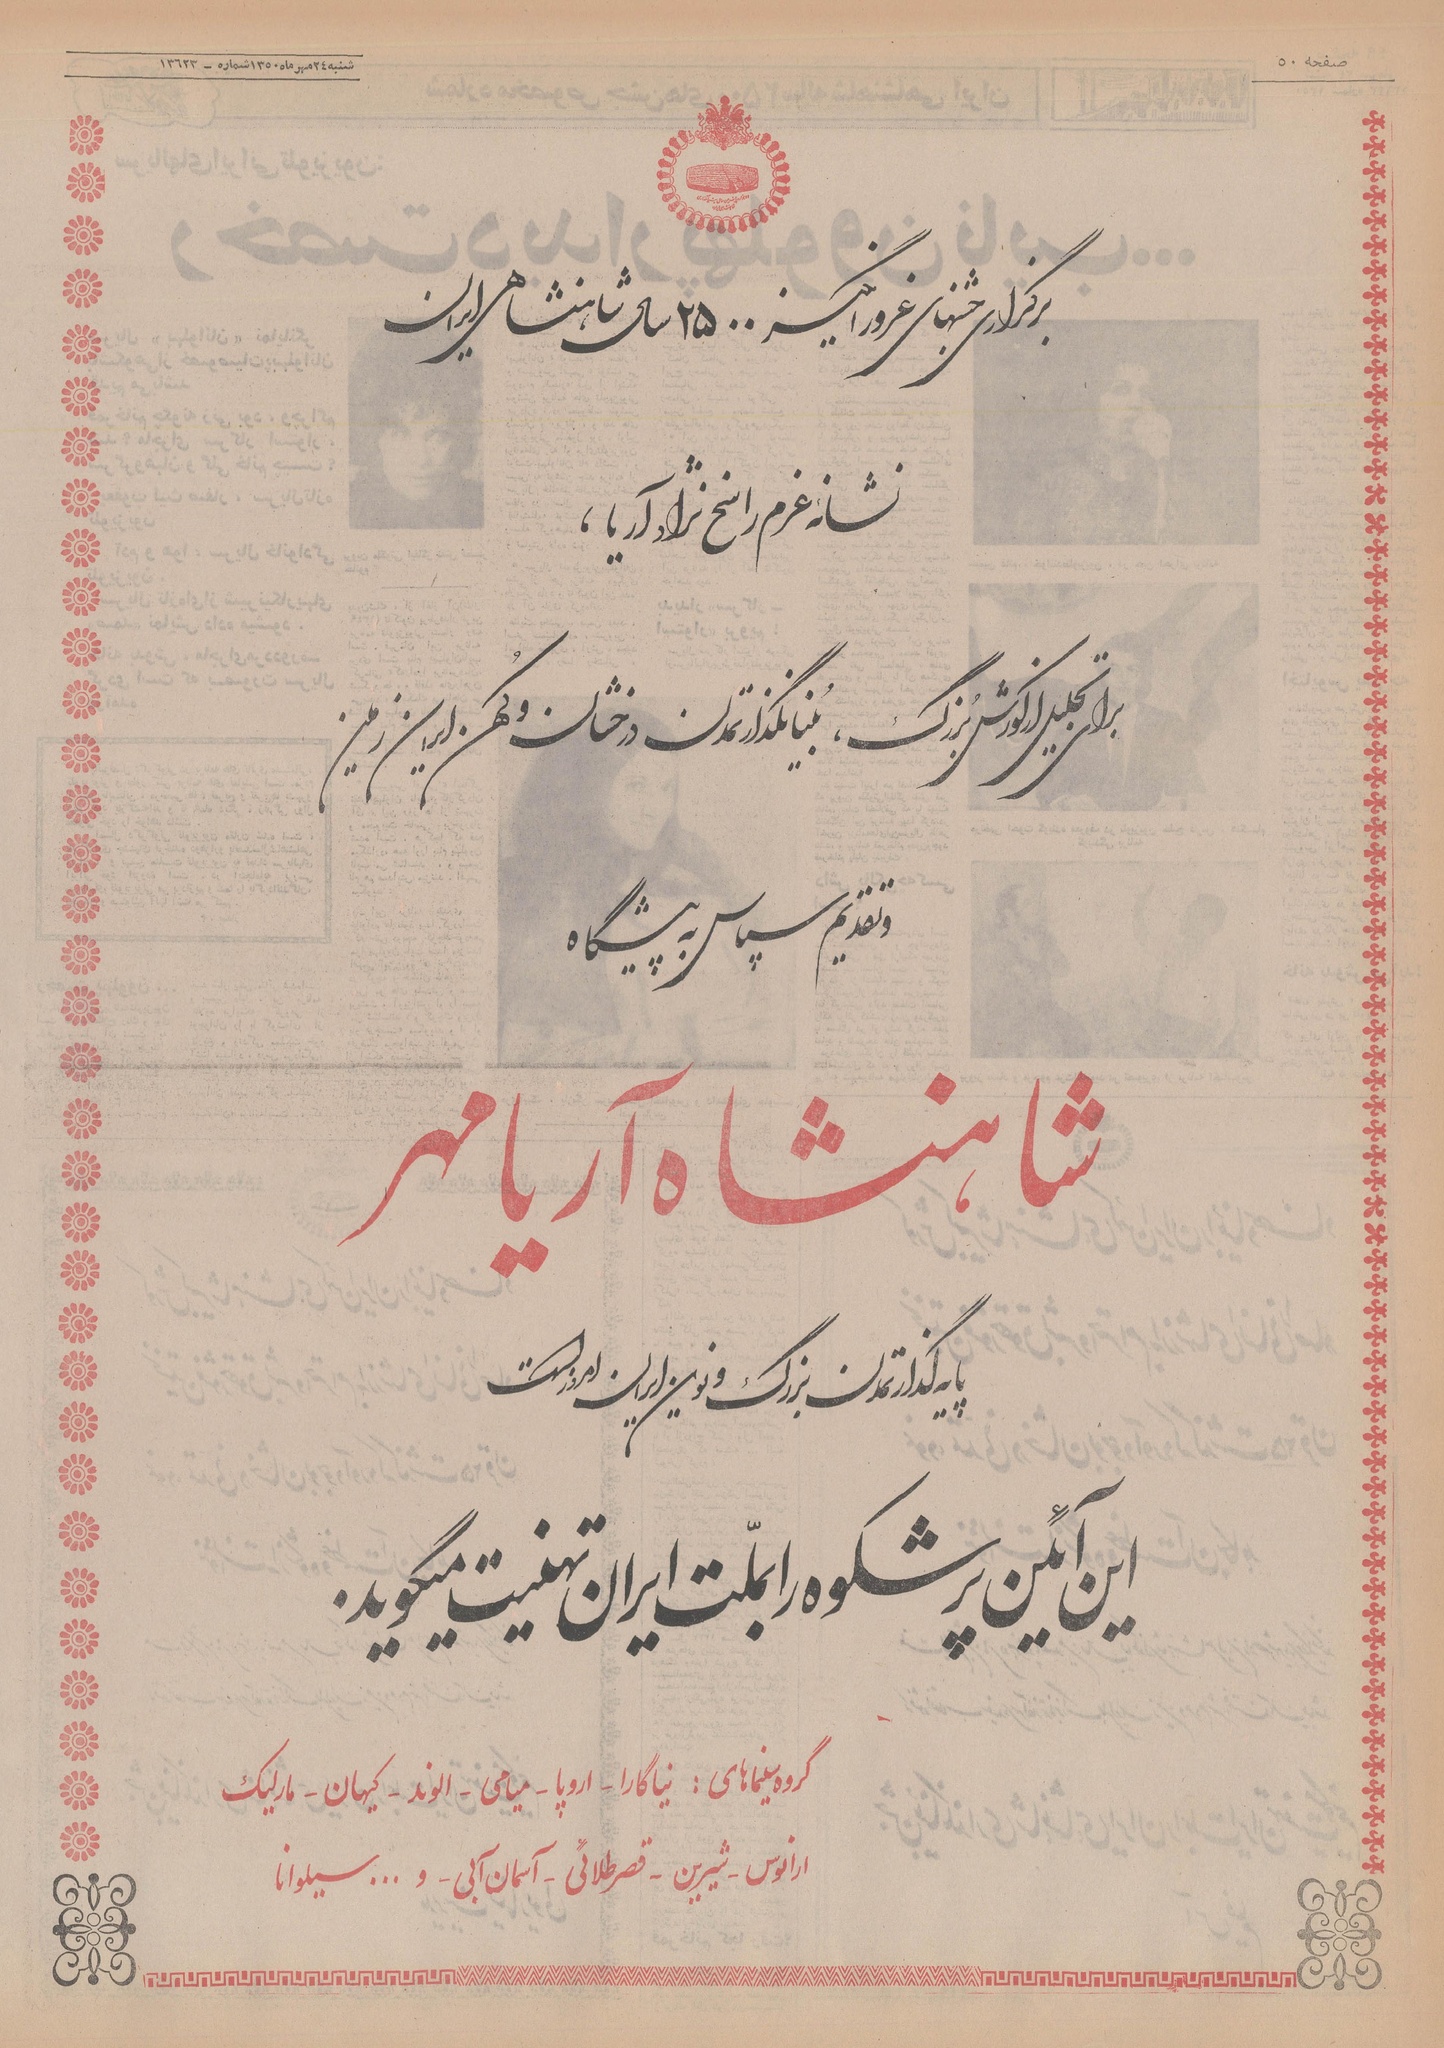 صفحه ۵۰
شنبه ۲۴ مهر ماه ۱۳۵۰ شماره - ۱۳۶۲۳
برگزاری جشنهای غرور انگیز ۲۵۰۰ سالهٔ شاهنشاهی ایران
نشانهٔ عزم راسخ نژاد آریا ،
برای تجلیل از کورش بزرگ ، بُنیانگذار تمدن درخشان و کُهن ایران زمین
و تقدیم سپاس به پیشگاه
شاهنشاه آریامهر
پایه گذار تمدن بزرگ و نوین ایران امروز است
این آئین پرشکوه را بملّت ایران تهنیت میگوید.
گروه سینماهای : نیاگارا - اروپا - میامی - الوند - کیهان - مارلیک
ارانوس - شیرین - قصرطلائی - آسمان آبی - و ... سیلوانا